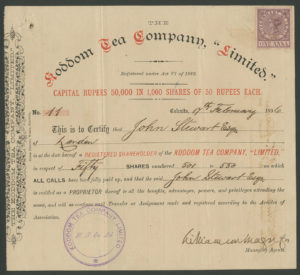 THE
Koddom Tea Company, "Limited."
Registered under Act VI of 1882.
CAPITAL RUPEES 50,000 IN 1,000 SHARES OF 50 RUPEES EACH.
No. 11 Calcutta, 17th February
This is to Certify that John Stewart Esqr
of London
is at the date hereof a REGISTERED SHAREHOLDER of the KODDOM TEA COMPANY, "LIMITED,"
in respect of Fifty SHARES numbered 501 to 550 on which
ALL CALLS have been fully paid up, and that the said John Stewart Esqr
is entitled as PROPRIETOR thereof to all the benefits, advantages, powers, and privileges attending the
same, and will so continue until Transfer or Assignment made and registered according to the Articles of
Association.
Managing Agents.
KODDOM TEA COMPANY, LIMITED
ONE ANNA